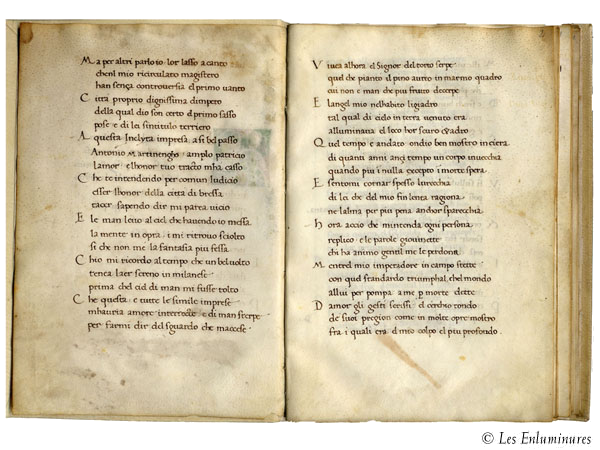 Ma per altri parlo io lor lasso a canto
che nel mio ricirculato magistero
han senza controversia el primo vanto
Citta proprio dignissima dimpero
della qual dio son certo el primo sasso
pose e di lei fintitulo terriero
Aquesta Inclyta impresa a si bel passo
Antonio Martinengho amplo patricio
lamor e lhonor tuo tracto mha casso
Che te intendendo per comun Iudicio
esser lhonor della citta di bressa
tacer sapendo dir mi parea vicio
E le man levo al ciel che havendo io messa
la mente in opra i mi ritrovo sciolto
si che non me la fantasia piu fessa
Chio mi ricordo al tempo che un bel volto
tenea laer sereno in milanese
prima chel ciel di man mi fusse tolto
Che questa e tutte le simile imprese
mhavria amore interrocte e di man
per farmi dir del sguardo che maccese
Viuea alhora el Signor del torto serpe
quel che pianto el pino aurto in marmo quadro
cui non e man che piu frutto decerpe
E langel mio nelhabito ligiadro
tal qual di cielo in terra venuto era
alluminava el loco hor scuro
Quel tempo e andato ondio ben mostro in ciera
di quanti anni anzi tempo un corpo invecchia
quando piu i nulla excepto i morte spera
E sentomi tornar spesso lurecchia
di lei che del mio fin lenta ragiona
ne lalma per piu pena anchor sparecchia
hora accio che mintenda ogni persona
replico e le parole giovinette
chi ha animo gentil me le perdona
Mentrel mio imperadore in campo stette
con quel standardo triumphal chel mondo
allui per pompa a me p morte dette
Damor gli gesti scrissi el cerchio tondo
de suoi pregion come in molte opre mostro
fra i quali era el mio colpo el piu profondo.
© Les Enluminures